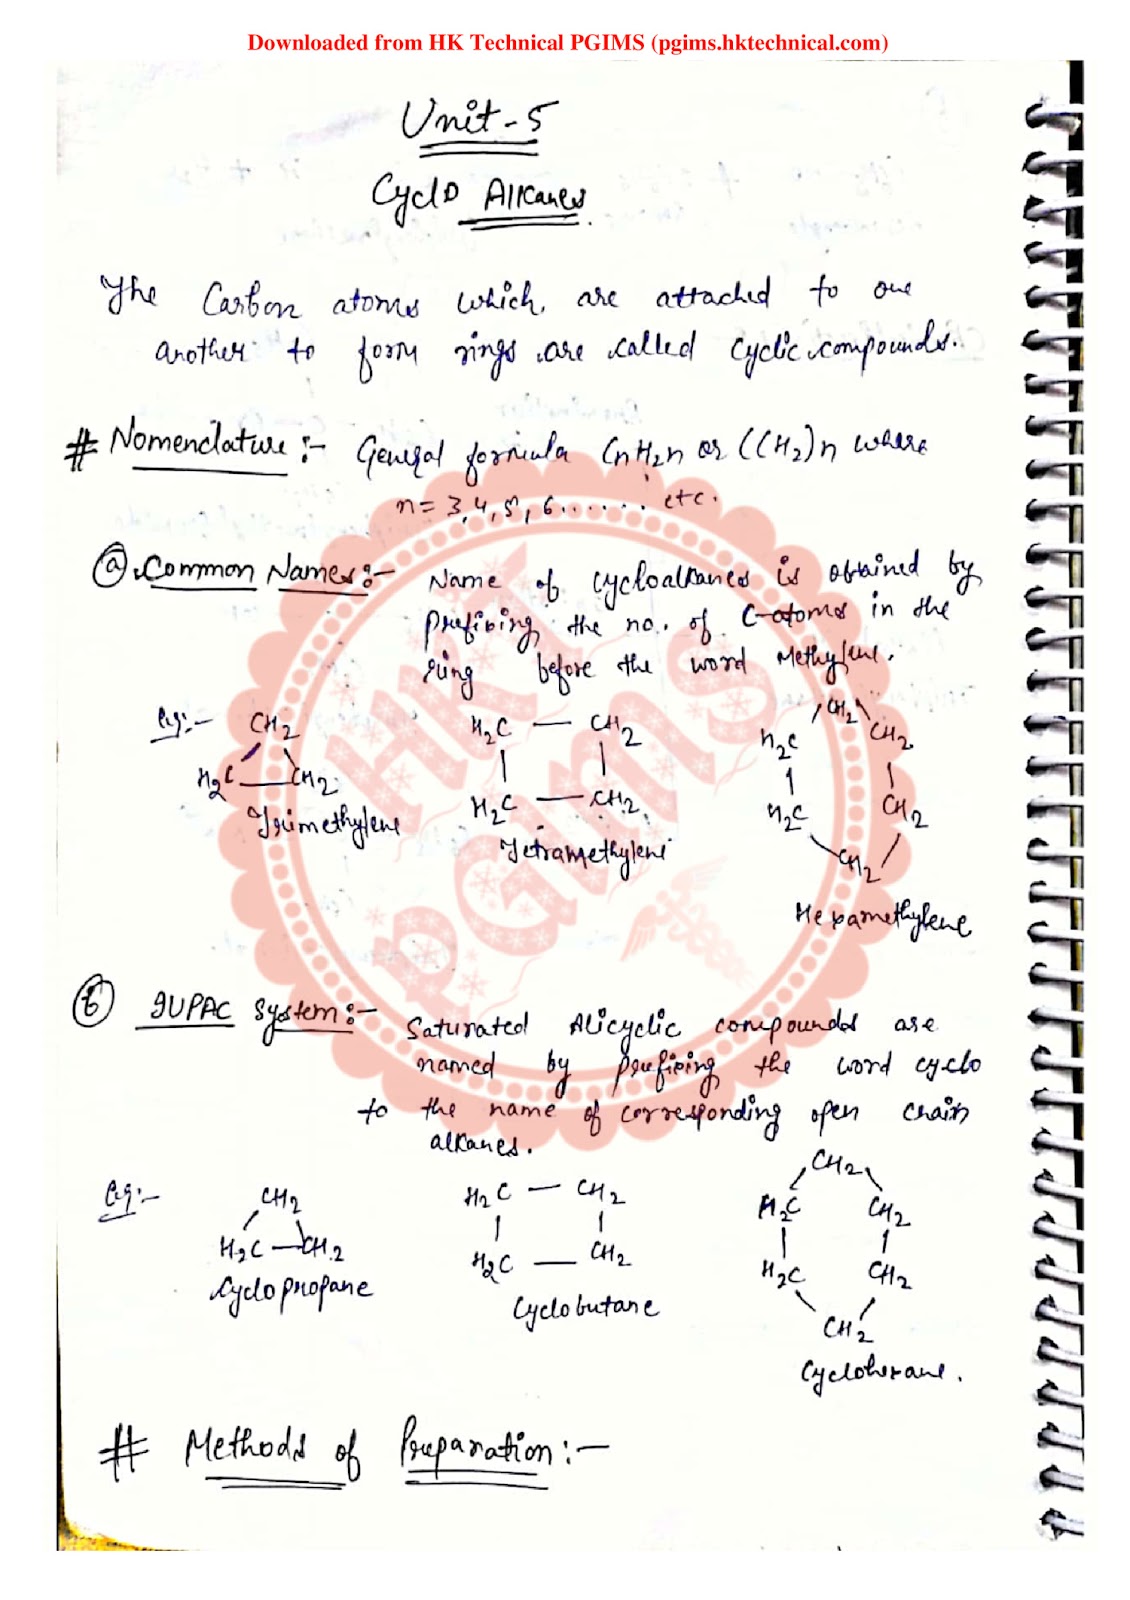 Downloaded from HK Technical PGIMS (pgims.hktechnical.com)
Unit-5
Cyclo Alkanes
The Carbon atoms which are attached to one
another to form rings are called cyclic compounds.
# Nomenclature :- General formula CnH2n or (CH2)n where
n = 3,4,5,6...... etc.
(a) Common Names :- Name of cycloalkanes is obtained by
prefixing the no. of C-atoms in the
ring before the word Methylene.
Eg:- CH2 H2C — CH2 CH2
H2C CH2
H2C — CH2 H2C — CH2 H2C CH2
CH2
Trimethylene Tetramethylene Hexamethylene
HKT
PGIMS
(b) IUPAC System :- Saturated Alicyclic compounds are
named by prefixing the word cyclo
to the name of corresponding open chain
alkanes.
Eg:- CH2 H2C — CH2 CH2
H2C CH2
H2C — CH2 H2C — CH2 H2C CH2
CH2
Cyclopropane Cyclobutane Cyclohexane.
# Methods of Preparation :-